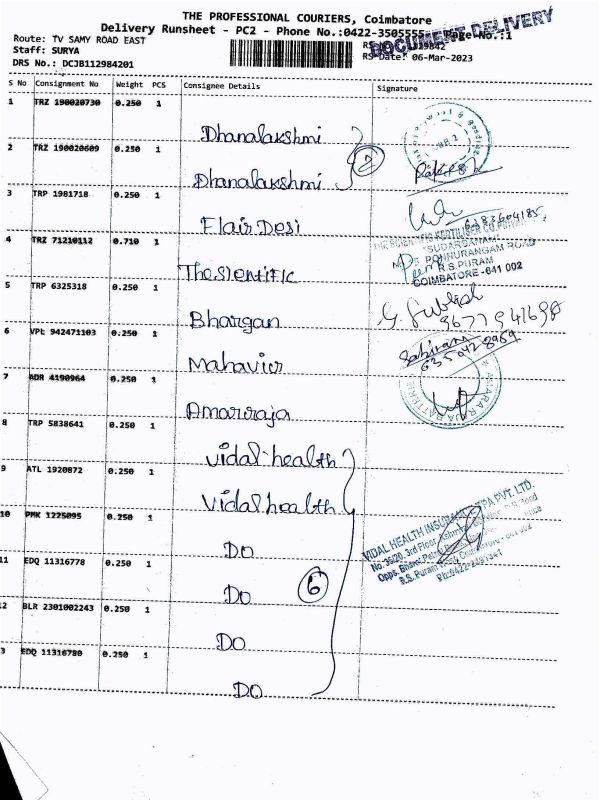 THE PROFESSIONAL COURIERS, Coimbatore
Delivery Runsheet - PC2 - Phone No.:0422-3505555 Page No.:1
DOCUMENT DELIVERY
Route: TV SAMY ROAD EAST
Staff: SURYA
RS Date: 06-Mar-2023
DRS No.: DCJB112984201
S No Consignment No Weight PCS Consignee Details Signature
1 TRZ 190020730 0.250 1
Dhanalakshmi
2 TRZ 190020609 0.250 1
2
Dhanalakshmi
3 TRP 1981718 0.250 1
Flair Desi
6383604185
4 TRZ 71210112 0.710 1
THE SCIENTIFIC FERTILISER CO.
"SUDARSANAM"
PONNURANGAM ROAD
R.S.PURAM
COIMBATORE -641 002
The Sientific
5 TRP 6325318 0.250 1
Bhargan
6 VPL 942471103 0.250 1
Mahavier
7 ADR 4190964 0.250 1
AMARA RAJA BATTERIE
Amarraja
8 TRP 5838641 0.250 1
Vidal-health
9 ATL 1920872 0.250 1
Vidal health
VIDAL HEALTH INSURANCE TPA PVT. LTD.
No.36/20, 3rd Floor
R.S. Puram West
10 PMK 1225095 0.250 1
DO
11 EDQ 11316778 0.250 1
6
DO
12 BLR 2301002243 0.250 1
DO
3 EDQ 11316780 0.250 1
DO